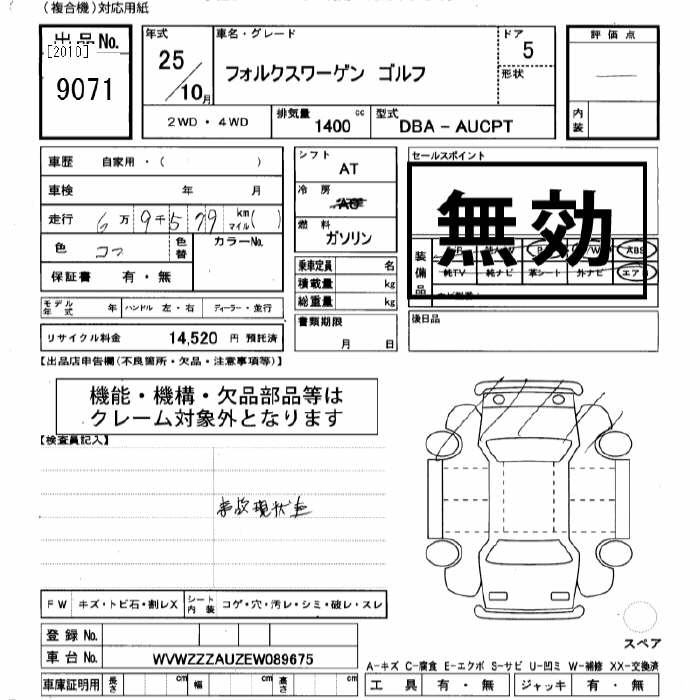 (複合機)対応用紙
出品No.
[2010]
9071
年式
25
10月
車名・グレード
フォルクスワーゲン ゴルフ
ドア
5
形状
2WD・4WD
排気量
1400 cc
型式
DBA - AUCPT
評価点
内装
車歴 自家用・( )
車検 年 月
走行 6万9千579 km マイル( )
色
色替
カラーNo.
保証書 有・無
モデル年式 年
ハンドル 左・右
ディーラー・並行
リサイクル料金 14,520 円 預託済
シフト
AT
冷房
燃料
ガソリン
乗車定員 名
積載量 kg
総重量 kg
書類期限
月 日
セールスポイント
無効
装備品
ABS
純TV
純ナビ
革シート
外ナビ
エア
後日品
【出品店申告欄(不良箇所・欠品・注意事項等)】
機能・機構・欠品部品等は
クレーム対象外となります
【検査員記入】
事故現状車
FW
キズ・トビ石・割レX
シート内装
コゲ・穴・汚レ・シミ・破レ・スレ
登録No.
車台No.
WVWZZZAUZEW089675
車庫証明用
長さ cm
幅 cm
高さ cm
スペア
A-キズ C-腐食 E-エクボ S-サビ U-凹ミ W-補修 XX-交換済
工具 有・無
ジャッキ 有・無